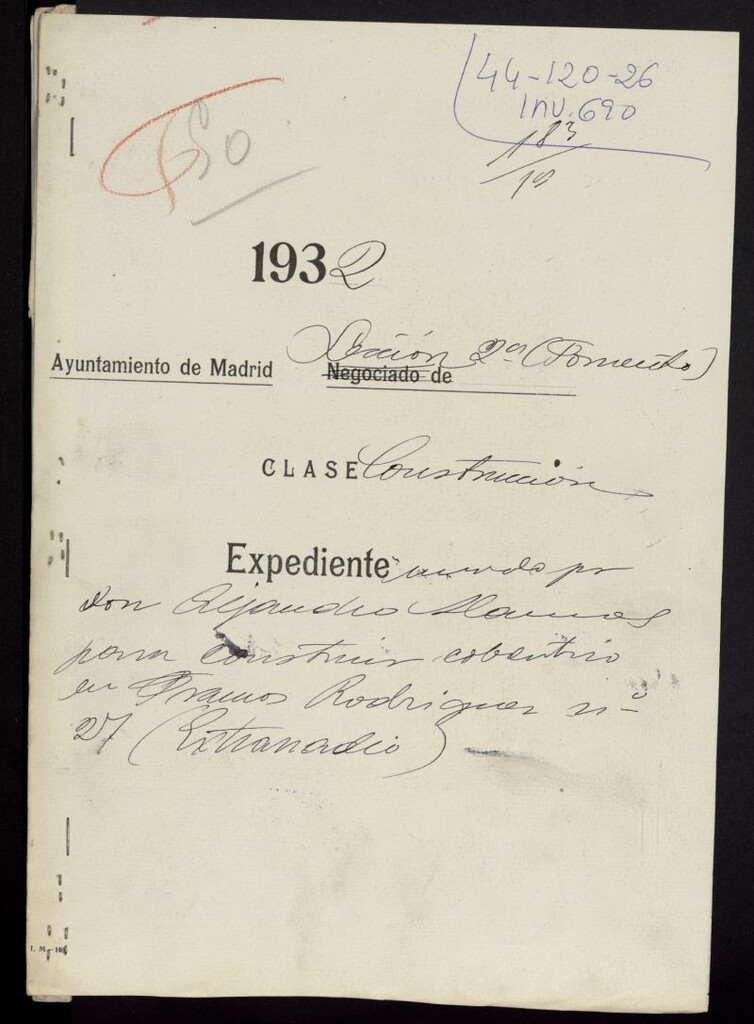 44-120-26
Inv. 690
183
19
50
1932
Ayuntamiento de Madrid
Sección 2ª (Fomento)
Negociado de
CLASE Construcción
Expediente incoado por
don Alejandro Llamas
para construir cobertizo
en Francos Rodriguez nº
27 (Extrarradio)